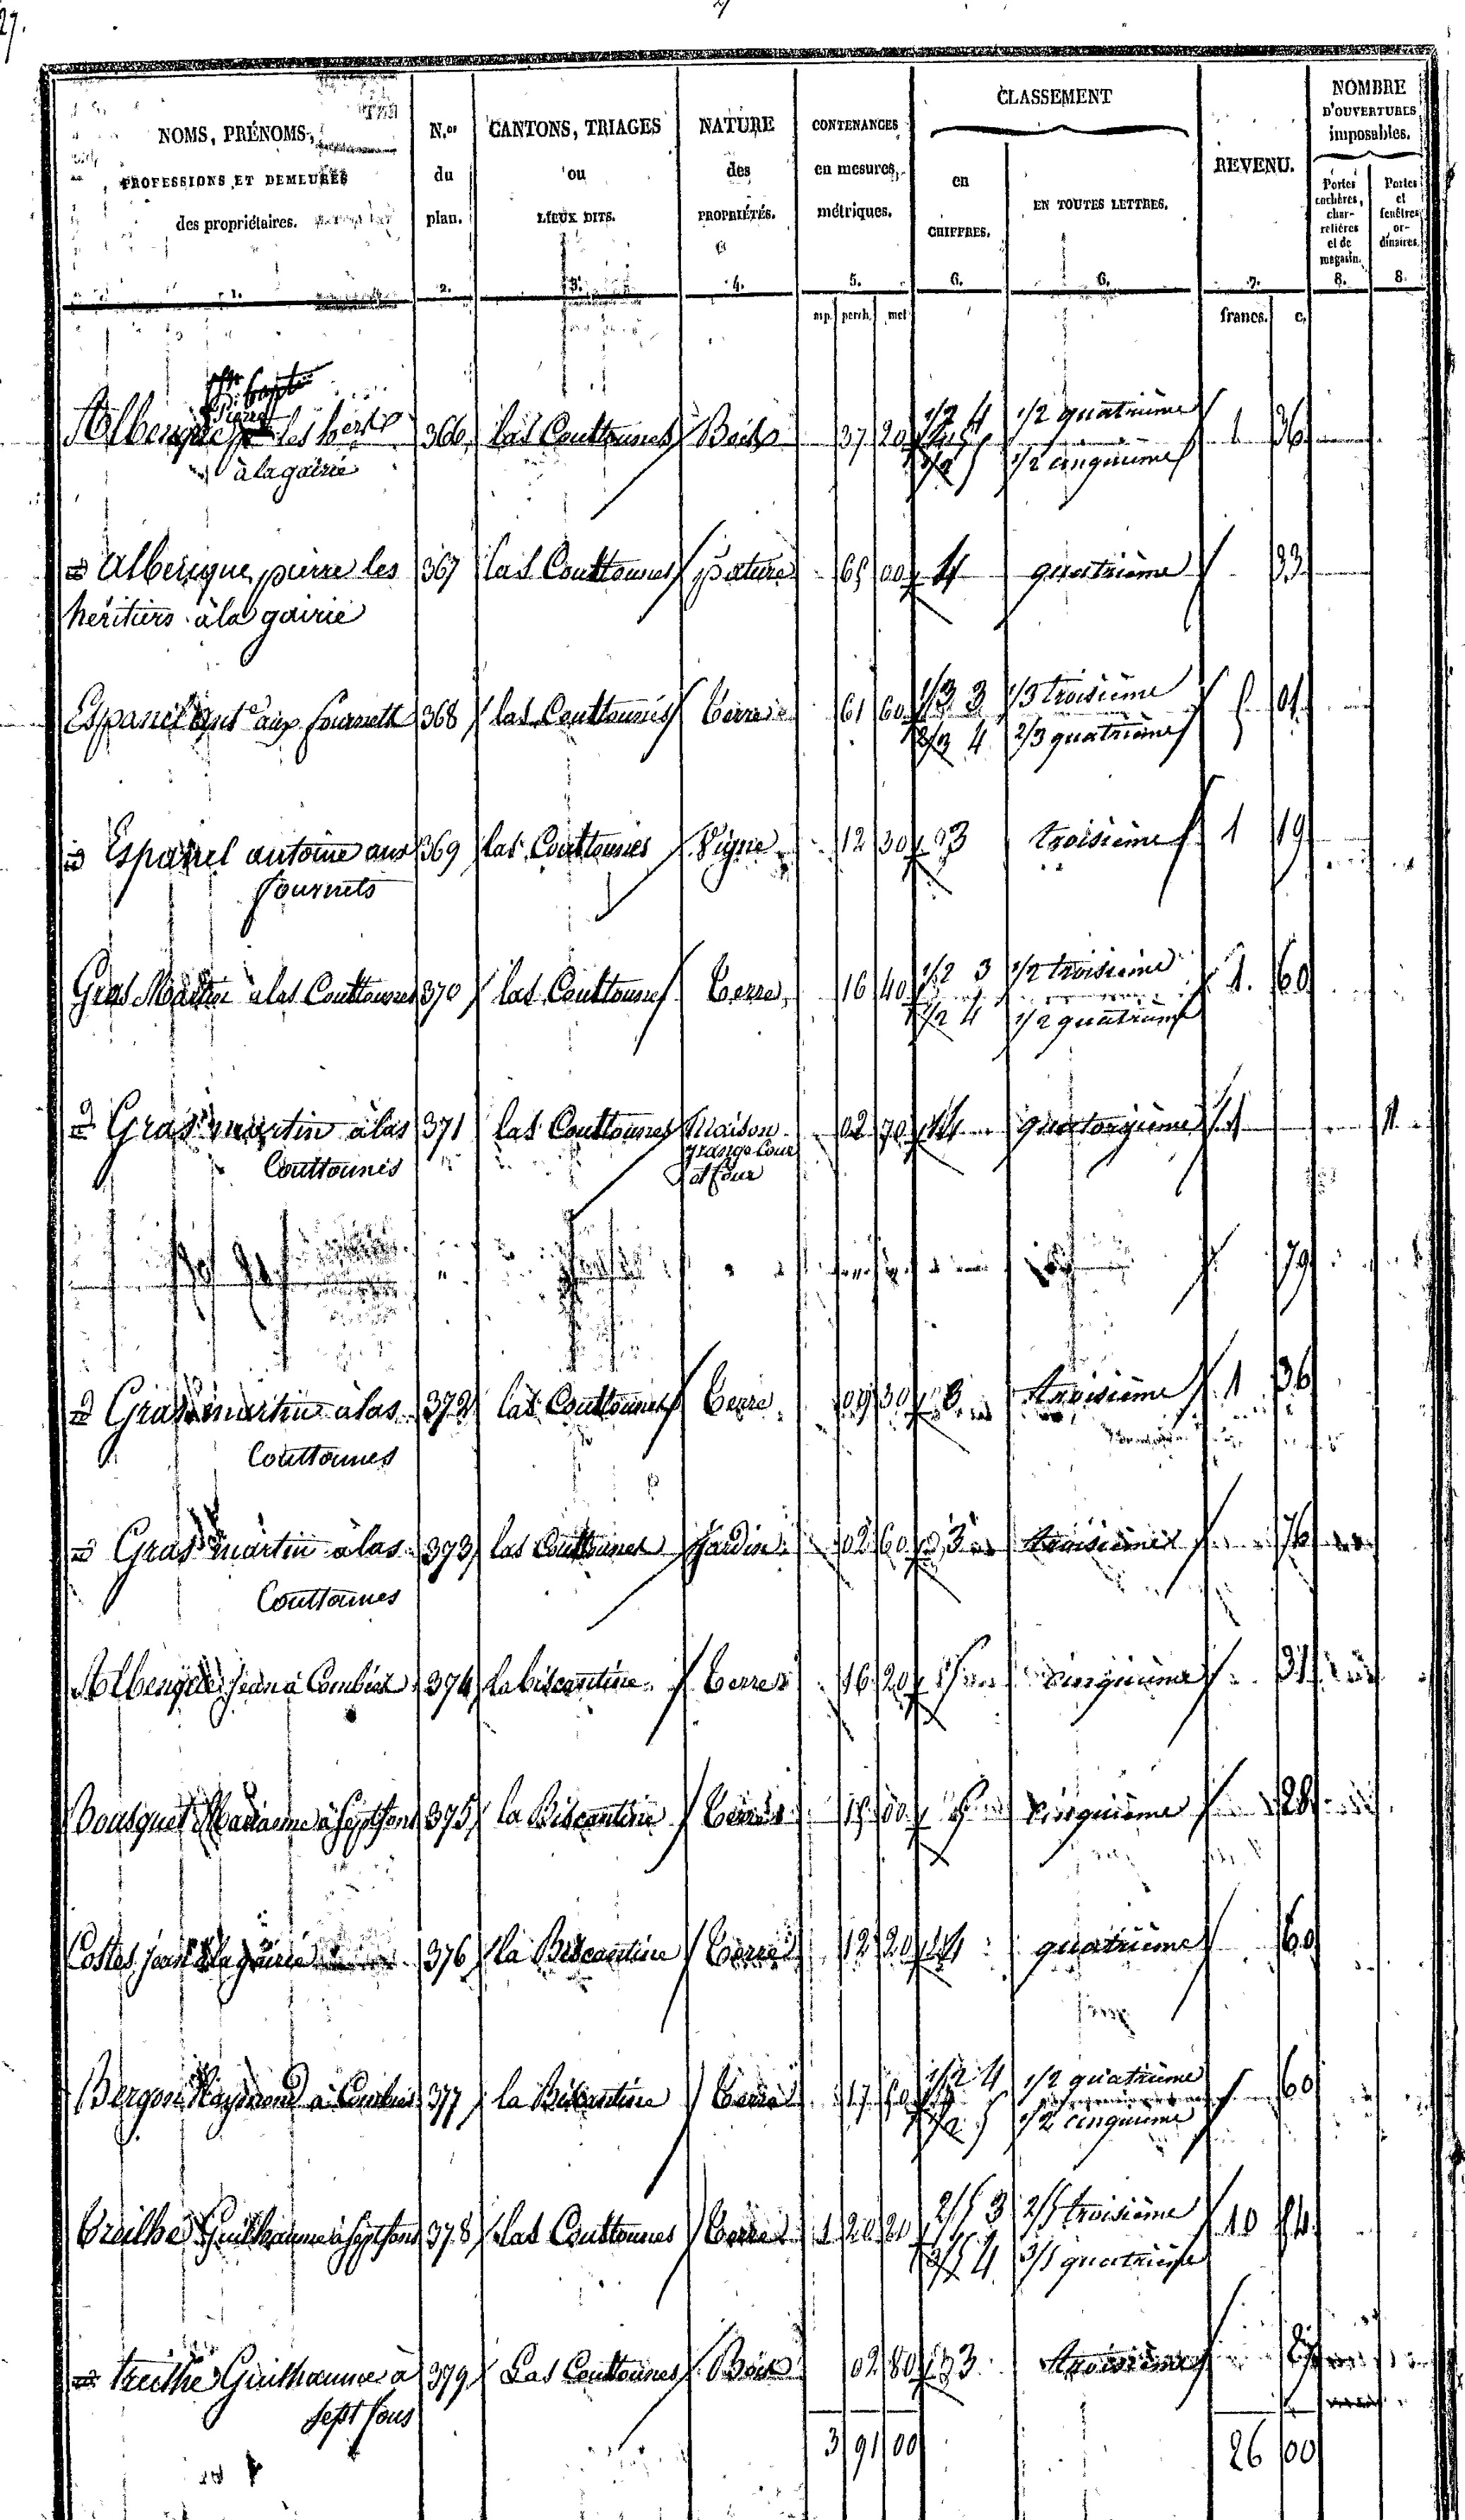 27.
NOMS, PRÉNOMS,
PROFESSIONS ET DEMEURES
des propriétaires.
N.os du plan.
CANTONS, TRIAGES ou LIEUX DITS.
NATURE des PROPRIÉTÉS.
CONTENANCES en mesures métriques.
CLASSEMENT
en CHIFFRES.
EN TOUTES LETTRES.
REVENU.
NOMBRE D'OUVERTURES imposables.
Portes cochères, charretières et de magasin.
Portes et fenêtres ordinaires.
1. 2. 3. 4. 5. 6. 6. 7. 8. 8.
arp. perch. met. francs. c.
les 366 las Couttounes Bois 37 20 1/2 4 1/2 quatrième 1 36
à la gairie 1/2 5 1/2 cinquième
pierre les 367 las Couttounes pature 65 00 4 quatrième 33
héritiers à la gairie
Espanel aux fournets 368 las Couttounes Terre 61 60 1/3 3 1/3 troisième 01
2/3 4 2/3 quatrième
Espanel antoine aux 369 las Couttounes Vigne 12 30 3 troisième 1 19
fournets
Gras Martin à las Couttounes 370 las Couttounes Terre 16 40 1/2 3 1/2 troisième 1 60
1/2 4 1/2 quatrième
Gras martin à las 371 las Couttounes Maison 02 70 quatorzième 1
Couttounes grange Cour
et four
79
Gras martin à las 372 las Couttounes Terre 09 30 3 troisième 1 36
Couttounes
Gras martin à las 373 las Couttounes Jardin 02 60 3 troisième 76
Couttounes
jean à 374 la biscantine Terre 16 20 5 cinquième 31
Bousquet à Septfons 375 la Biscantine Terre 15 00 5 cinquième 28
Costes jean à la gairie 376 la Biscantine Terre 12 20 4 quatrième 60
Raymond à 377 la Biscantine Terre 17 1/2 4 1/2 quatrième 60
1/2 5 1/2 cinquième
Treilhe Guilhaume à Septfons 378 las Couttounes Terre 1 20 20 2/5 3 2/5 troisième 10 54
3/5 4 3/5 quatrième
Treilhe Guilhaume à 379 Las Couttounes Bois 02 80 3 troisième
sept fons
3 91 00 26 00